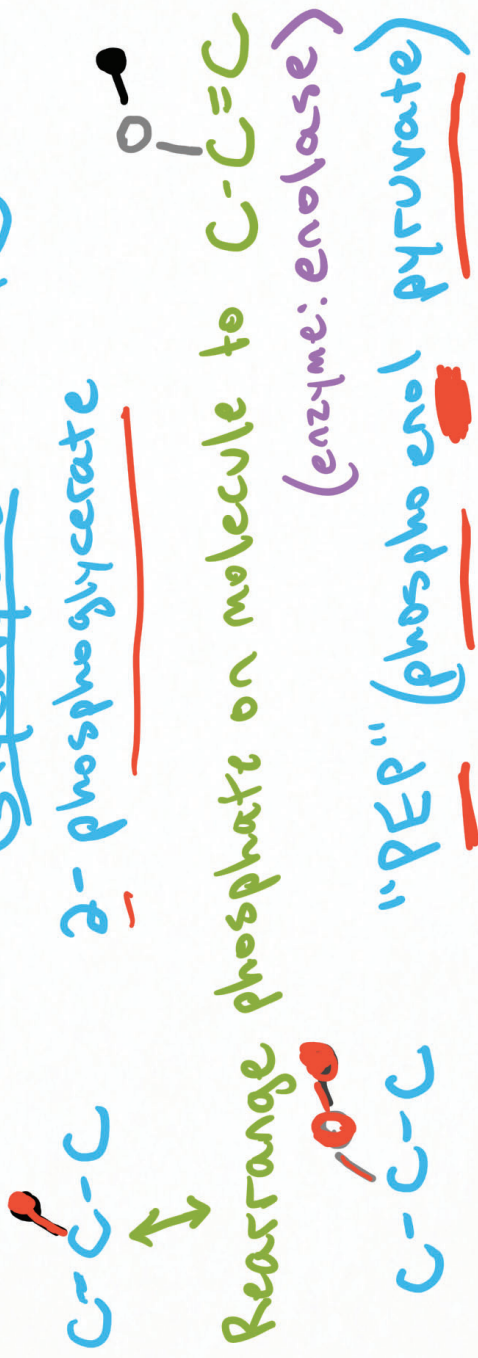 C-C-C 2-phosphoglycerate
Rearrange phosphate on molecule to C-C=C
O
(enzyme: enolase)
O
C-C-C "PEP" (phospho enol pyruvate)